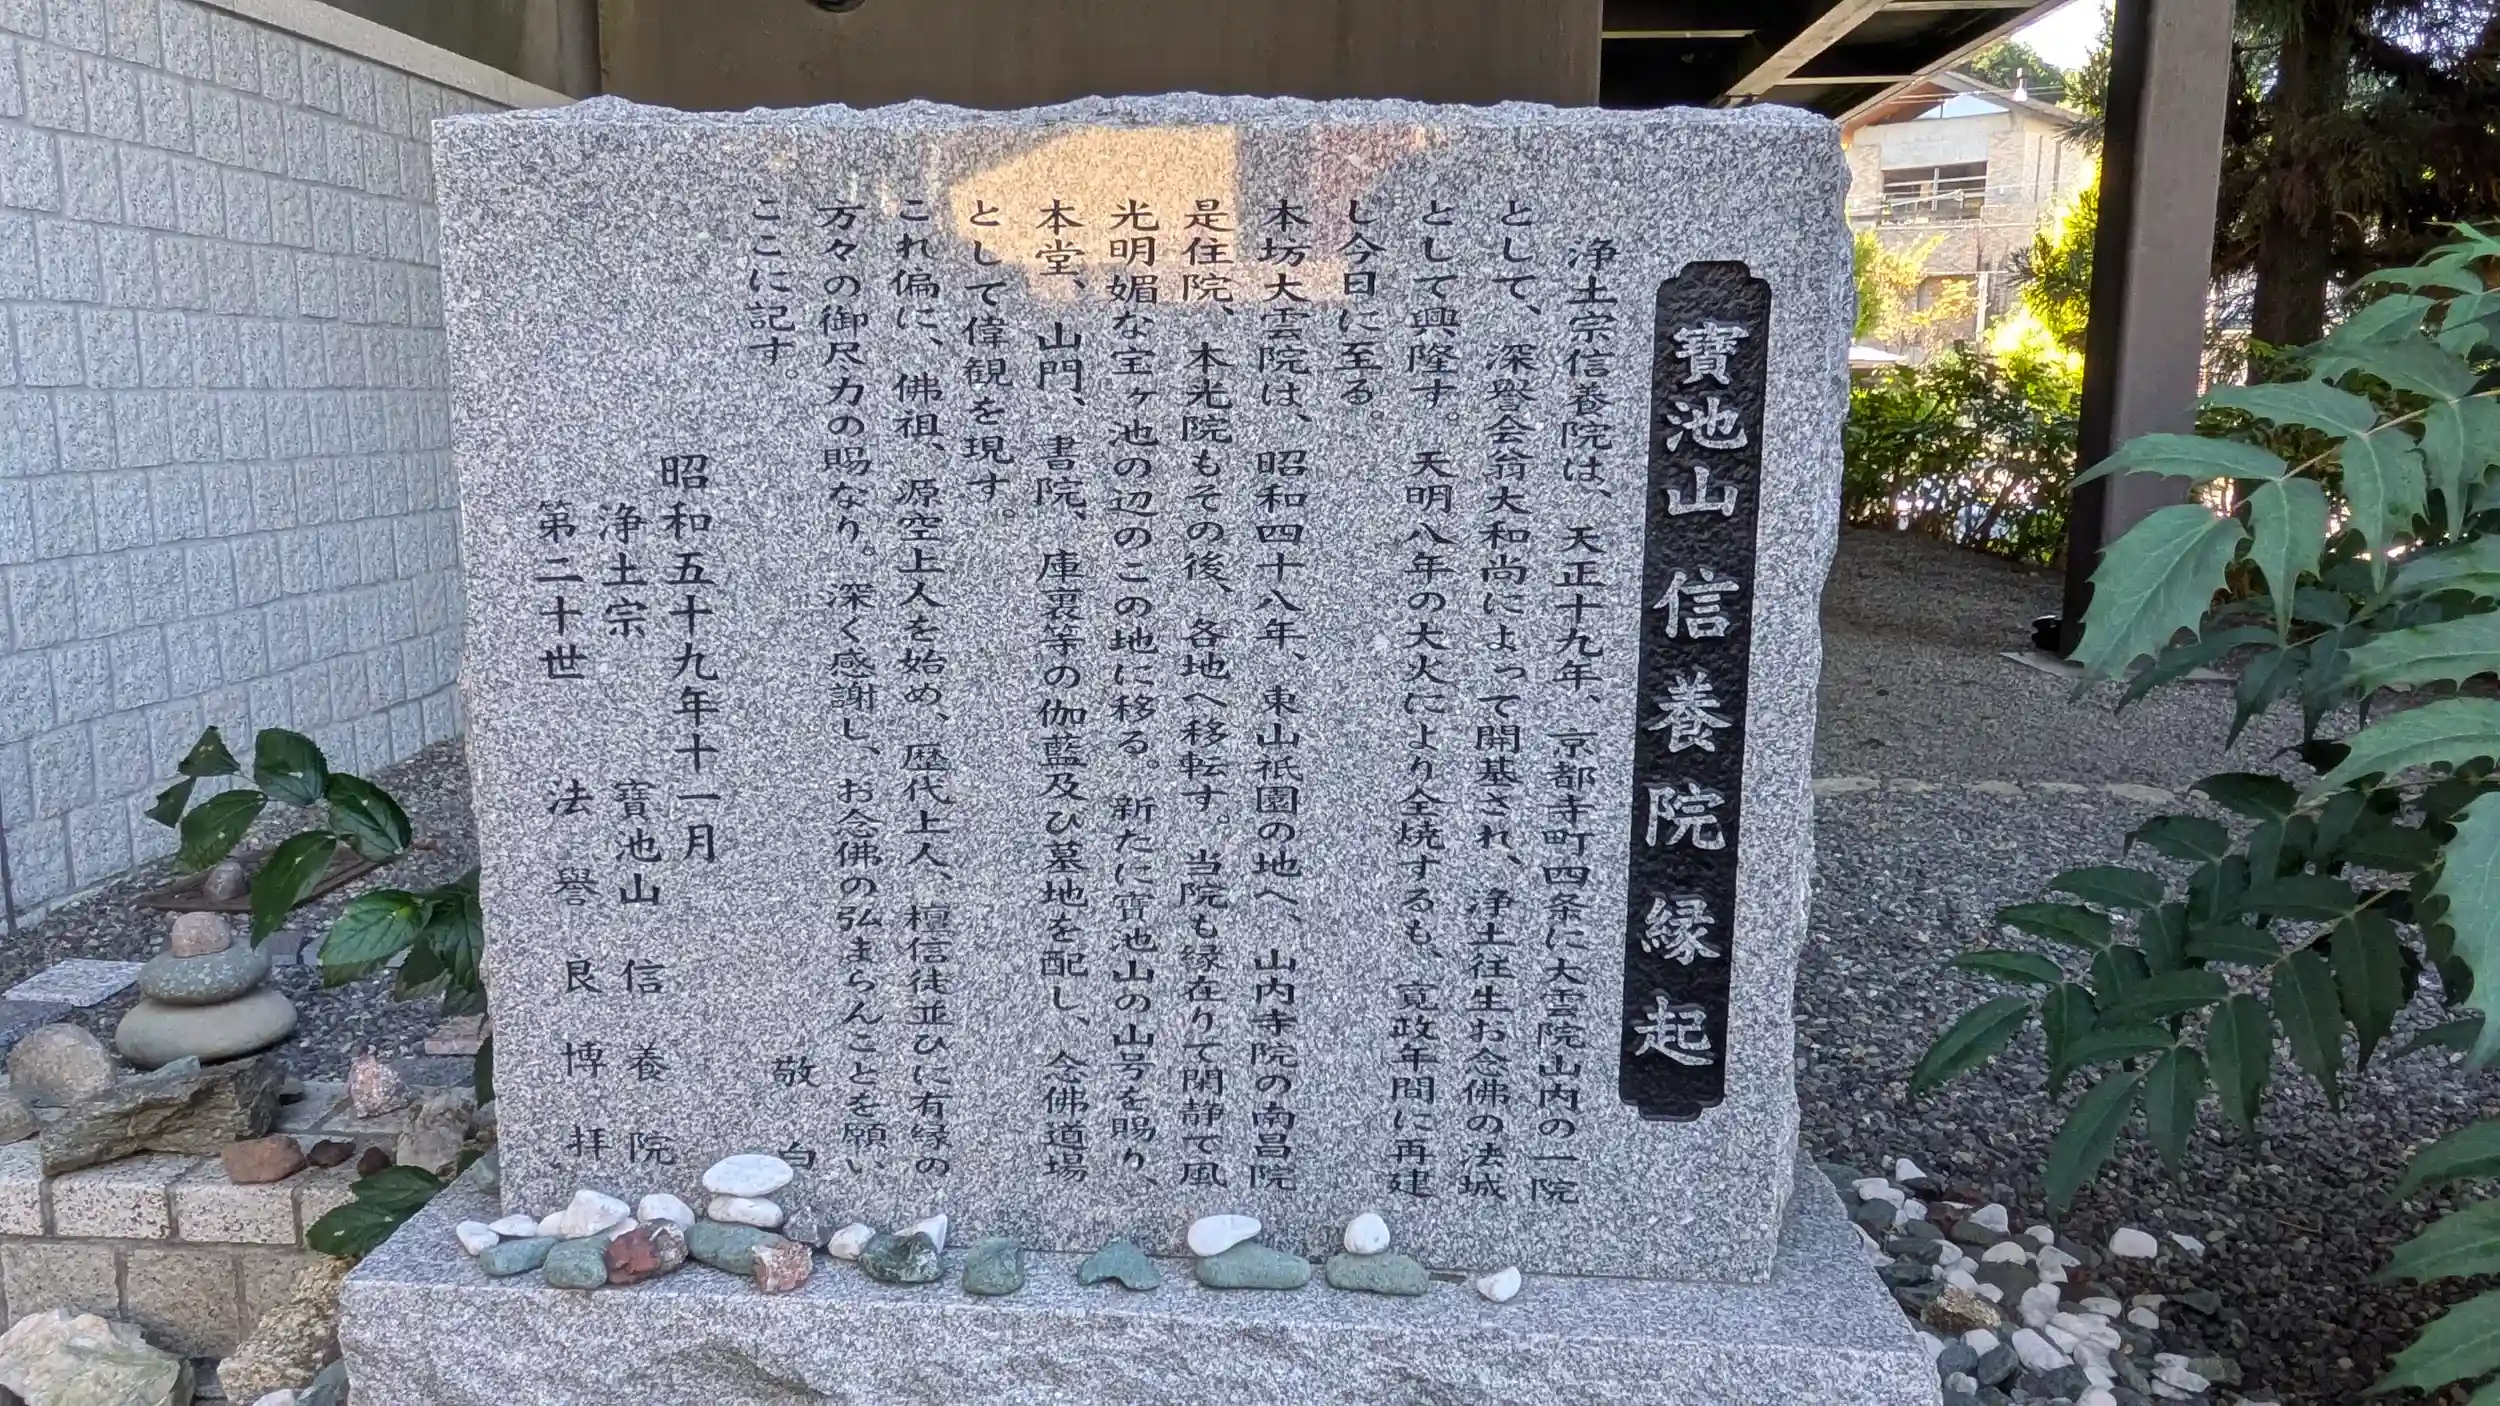 寶池山信養院縁起
浄土宗信養院は、天正十九年、京都寺町四条に大雲院山内の一院
として、深誉会翁大和尚によって開基され、浄土往生お念佛の法城
として興隆す。天明八年の大火により全焼するも、寛政年間に再建
し今日に至る。
本坊大雲院は、昭和四十八年、東山祇園の地へ、山内寺院の南昌院
是住院、本光院もその後、各地へ移転す。当院も縁在りて閑静で風
光明媚な宝ヶ池の辺のこの地に移る。新たに寶池山の山号を賜り、
本堂、山門、書院、庫裏等の伽藍及ひ墓地を配し、念佛道場
として偉観を現す。
これ偏に、佛祖、源空上人を始め、歴代上人、檀信徒並ひに有縁の
方々の御尽力の賜なり。深く感謝し、お念佛の弘まらんことを願い
ここに記す。
敬白
昭和五十九年十一月
浄土宗 寶池山 信養院
第二十世 法誉良博拝